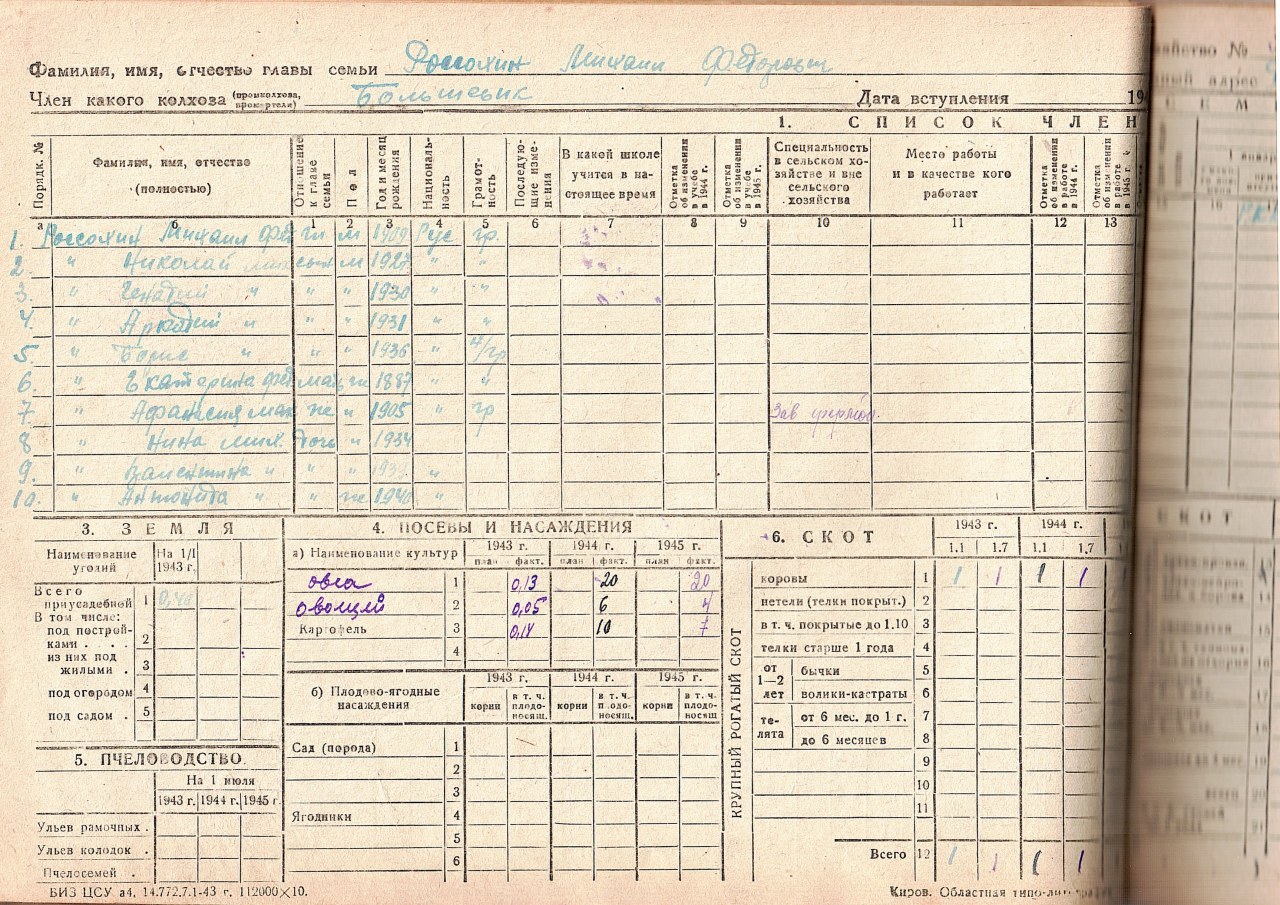 Фамилия, имя, отчество главы семьи Россохин Михаил Федорович
Член какого колхоза (промколхоза, промартели) Большевик Дата вступления 19
1. СПИСОК ЧЛЕН
Порядк. № Фамилия, имя, отчество (полностью) Отношение к главе семьи Пол Год и месяц рождения Националь-ность Грамот-ность Последую-щие изме-нения В какой школе учится в на-стоящее время Отметка об изменении в учебе в 1944 г. Отметка об изменении в учебе в 1945 г. Специальность в сельском хо-зяйстве и вне сельского хозяйства Место работы и в качестве кого работает Отметка об изменении в работе в 1944 г. Отметка об изменении в работе в 1945 г.
а б 1 2 3 4 5 6 7 8 9 10 11 12 13
1. Россохин Михаил Фед гл м 1909 Рус гр.
2. " Николай мих сын м 1927 " "
3. " Генадий " " " 1930 " "
4. " Аркадий " " " 1931 " "
5. " Борис " " " 1936 " н/гр
6. " Екатерина Фед мать ж 1887 " "
7 " Афанасия мак же " 1905 " гр Зав фермой.
8 " Нина мих. дочь " 1934
9. " Валентина " " " "
10. " Антонида " " ж 1940 "
3. ЗЕМЛЯ
Наименование угодий На 1/I 1943 г.
Всего приусадебной 1 0,40
В том числе:
под построй-ками . . . . 2
из них под жилыми . 3
под огородом 4
под садом . 5
5. ПЧЕЛОВОДСТВО
На 1 июля
1943 г. 1944 г. 1945 г.
Ульев рамочных .
Ульев колодок .
Пчелосемей .
4. ПОСЕВЫ И НАСАЖДЕНИЯ
а) Наименование культур 1943 г. 1944 г. 1945 г.
план факт. план факт. план факт.
овса 1 0,13 20 20
овощей 2 0,05 6 4
Картофель 3 0,14 10 7
4
б) Плодово-ягодные насаждения 1943 г. 1944 г. 1945 г.
корни в т. ч. плодо-носящ. корни в т. ч. плодо-носящ. корни в т. ч. плодо-носящ
Сад (порода) 1
2
3
Ягодники 4
5
6
6. СКОТ
1943 г. 1944 г.
1.1 1.7 1.1 1.7
КРУПНЫЙ РОГАТЫЙ СКОТ
коровы 1 1 1 1 1
нетели (телки покрыт.) 2
в т. ч. покрытые до 1.10 3
телки старше 1 года 4
от 1—2 лет бычки 5
волики-кастраты 6
те-лята от 6 мес. до 1 г. 7
до 6 месяцев 8
9
10
11
Всего 12 1 1 1 1
БИЗ ЦСУ а4. 14.772.7.1-43 г. 112000×10.
Киров. Областная типо-лит